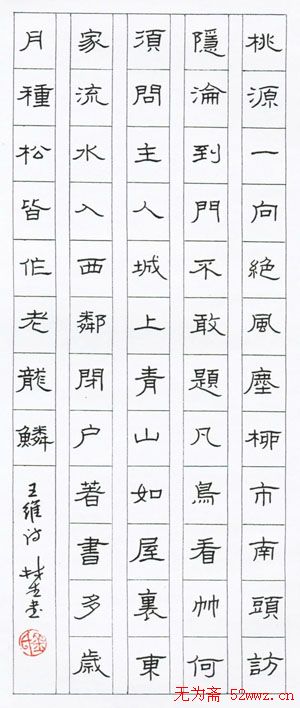 桃源一向絶風塵柳市南頭訪
隱淪到門不敢題凡鳥看竹何
須問主人城上青山如屋裏東
家流水入西鄰閉户著書多歲
月種松皆作老龍鱗
王維诗
无为斋 52wwz.cn